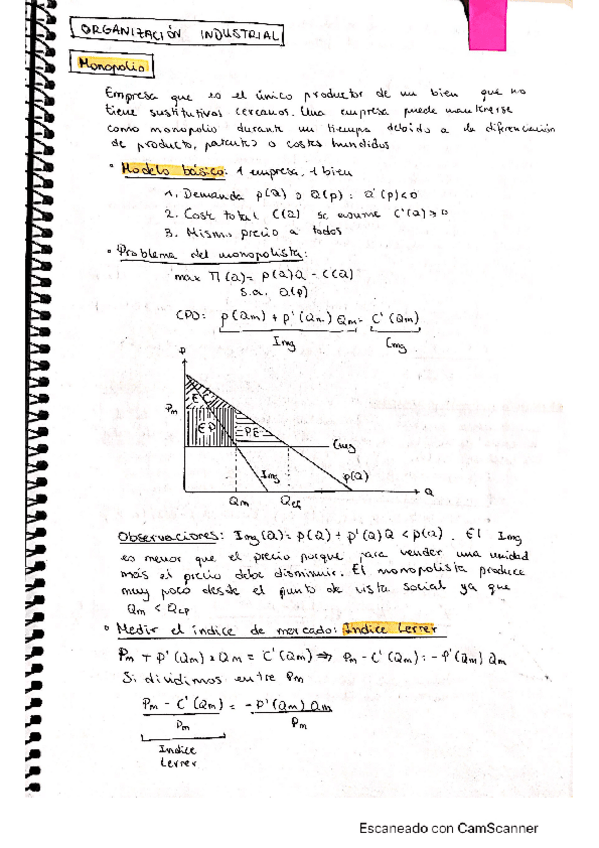 ORGANIZACIÓN INDUSTRIAL
Monopolio
Empresa que es el único productor de un bien que no
tiene sustitutivos cercanos. Una empresa puede mantenerse
como monopolio durante un tiempo debido a la diferenciación
de producto, patentes o costes hundidos
• Modelo básico: 1 empresa, 1 bien
1. Demanda p(Q) o Q(p) : Q'(p)<0
2. Coste total C(Q) se asume C'(Q)>0
3. Mismo precio a todos
• Problema del monopolista:
max Π(Q)= p(Q)Q - C(Q)
s.a. Q(p)
CPO: p(Qm) + p'(Qm) Qm = C'(Qm)
Img Cmg
P
EC
Pm
EP PE
Cmg
Img p(Q)
Qm Qcp Q
Observaciones: Img(Q)= p(Q) + p'(Q)Q < p(Q). El Img
es menor que el precio porque para vender una unidad
más el precio debe disminuir. El monopolista produce
muy poco desde el punto de vista social ya que
Qm < Qcp
• Medir el índice de mercado: Indice Lerrer
Pm + p'(Qm) x Qm = C'(Qm) ⇒ Pm - C'(Qm) = -p'(Qm) Qm
Si dividimos entre Pm
Pm - C'(Qm) = -p'(Qm) Qm
Pm Pm
Indice
Lerrer
Escaneado con CamScanner